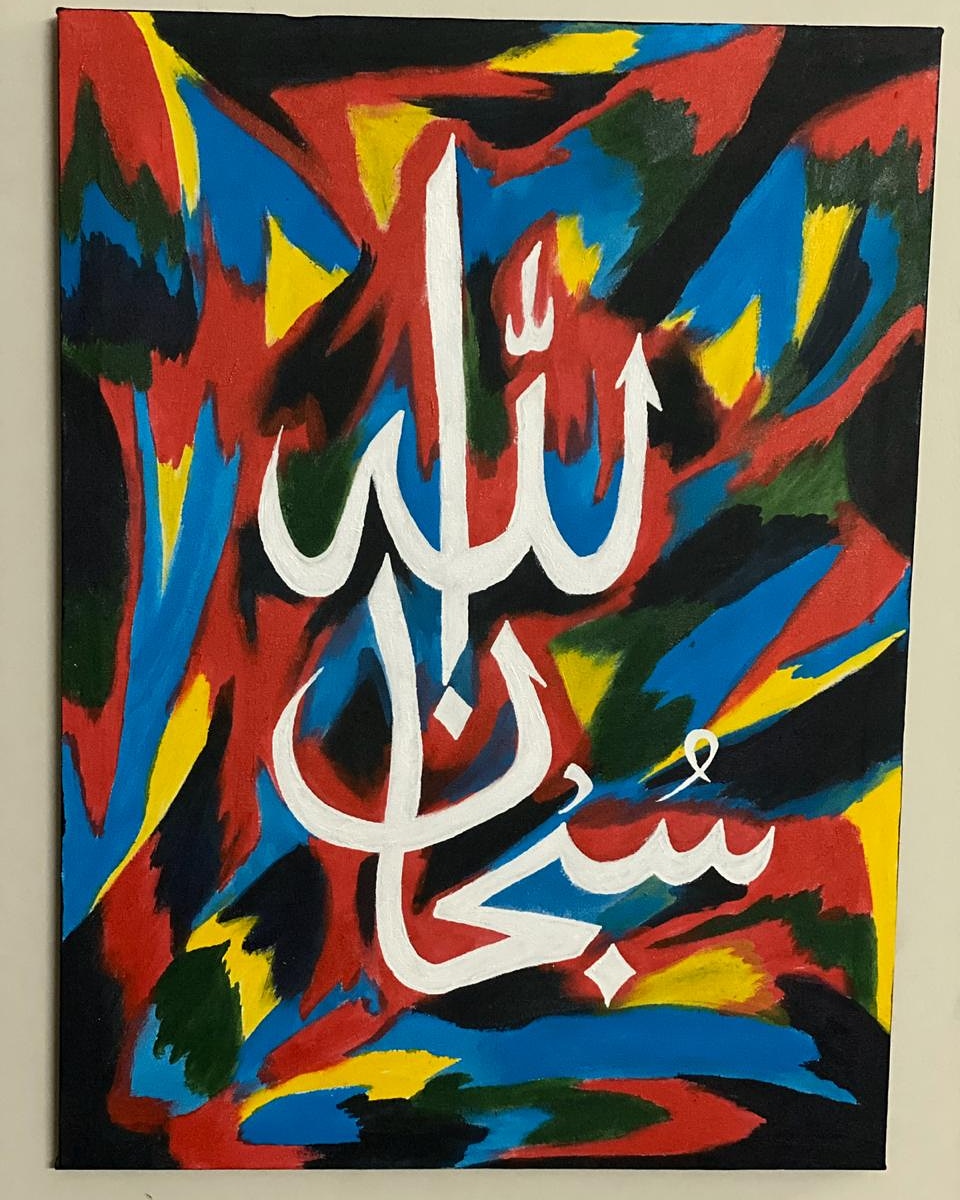 سُبحان
اللّه